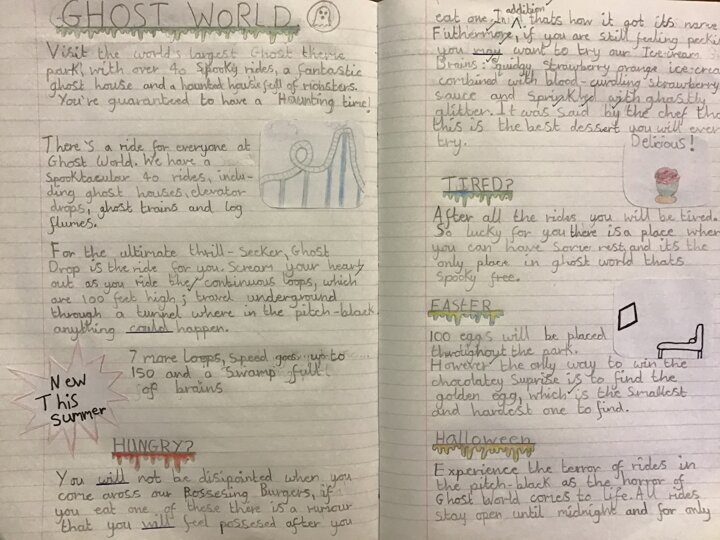 GHOST WORLD
Visit the world's largest Ghost theme
park, with over 40 spooky rides, a fantastic
ghost house and a haunted house full of monsters.
You're guaranteed to have a Haunting time!
There's a ride for everyone at
Ghost World. We have a
Spooktacular 40 rides, inclu-
ding ghost houses, elevator
drops, ghost trains and log
flumes.
For the ultimate thrill-seeker, Ghost
Drop is the ride for you. Scream your heart
out as you ride the continuous loops, which
are 100 feet high; travel underground
through a tunnel where in the pitch-black
anything could happen.
New
This
Summer
7 more loops, speed goes up to
150 and a swamp full
of brains
HUNGRY?
You will not be disipointed when you
come aross our Bossesing Burgers, if
you eat one of these there is a rumour
that you will feel possesed after you
eat one. In addition thats how it got its name
Futhermore, if you are still feeling peckis
you may want to try our Ice-cream
Brains: strawberry orange ice-crea
combined with blood-curdling strawberry
sauce and Sprinkled with ghostly
glitter. It was said by the chef tha
this is the best dessert you will ever
try.
Delicious!
TIRED?
After all the rides you will be tired.
So lucky for you there is a place wher
you can have some rest, and it's the
only place in ghost world thats
spooky free.
EASTER
100 eggs will be placed
throughout the park.
However the only way to win the
chocolatey Suprise is to find the
golden egg, which is the smallest
and hardest one to find.
Halloween
Experience the terror of rides in
the pitch-black as the horror of
Ghost World comes to life. All rides
stay open until midnight and for only